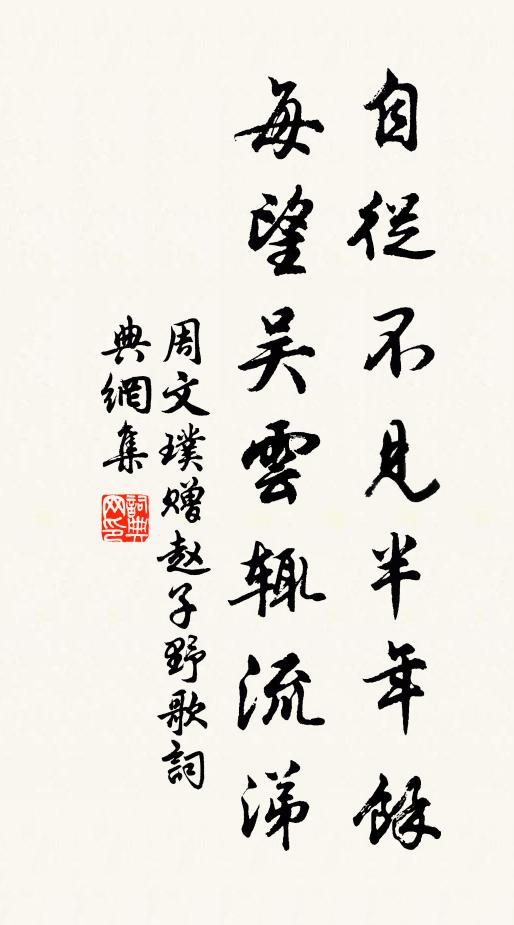 自從不見半年餘
每望吴雲辄流涕
周文璞赠赵子野歌詞
典網集
詞典網印